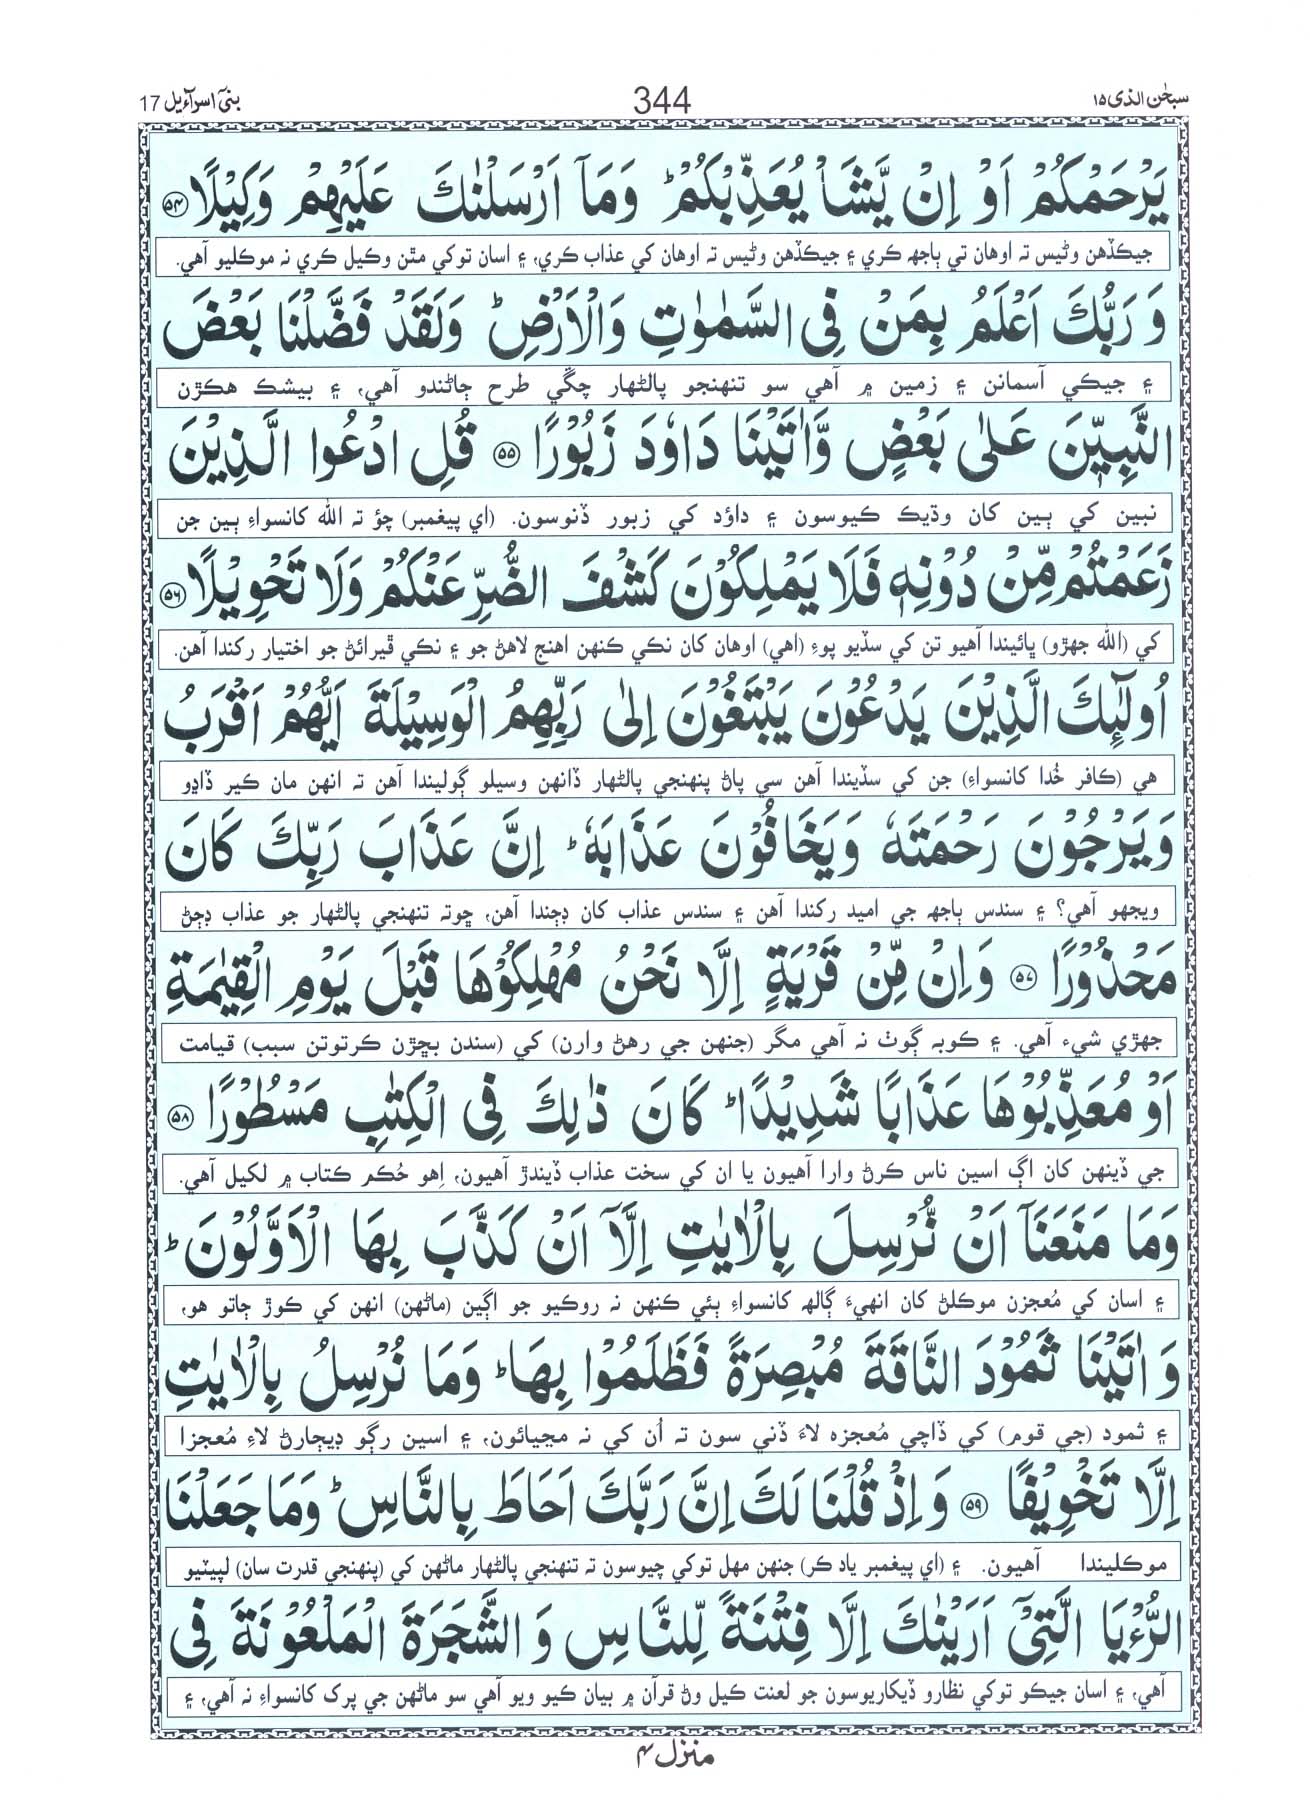 سبحٰن الذی ۱۵
344
بنیٓ اسرآءیل 17
يَرْحَمْكُمْ اَوْ اِنْ يَّشَاْ يُعَذِّبْكُمْ ؕ وَمَاۤ اَرْسَلْنٰكَ عَلَيْهِمْ وَكِيْلًا ۵۴
جيڪڏهن وڻيس تہ اوهان تي ٻاجهہ ڪري ۽ جيڪڏهن وڻيس تہ اوهان کي عذاب ڪري، ۽ اسان توکي مٿن وڪيل ڪري نہ موڪليو آهي.
وَ رَبُّكَ اَعْلَمُ بِمَنْ فِی السَّمٰوٰتِ وَالْاَرْضِ ؕ وَلَقَدْ فَضَّلْنَا بَعْضَ
۽ جيڪي آسمانن ۽ زمين ۾ آهي سو تنهنجو پالڻهار چڱي طرح ڄاڻندو آهي، ۽ بيشڪ هڪڙن
النَّبِيّٖنَ عَلٰی بَعْضٍ وَّاٰتَيْنَا دَاوٗدَ زَبُوْرًا ۵۵ قُلِ ادْعُوا الَّذِيْنَ
نبين کي ٻين کان وڌيڪ ڪيوسون ۽ داؤد کي زبور ڏنوسون. (اي پيغمبر) چؤ تہ الله کانسواءِ ٻين جن
زَعَمْتُمْ مِّنْ دُوْنِهٖ فَلَا يَمْلِكُوْنَ كَشْفَ الضُّرِّ عَنْكُمْ وَلَا تَحْوِيْلًا ۵۶
کي (الله جهڙو) ڀائيندا آهيو تن کي سڏيو پوءِ (اهي) اوهان کان نڪي ڪنهن اهنج لاهڻ جو ۽ نڪي ڦيرائڻ جو اختيار رکندا آهن.
اُولٰٓئِكَ الَّذِيْنَ يَدْعُوْنَ يَبْتَغُوْنَ اِلٰی رَبِّهِمُ الْوَسِيْلَةَ اَيُّهُمْ اَقْرَبُ
هي (ڪافر خُدا کانسواءِ) جن کي سڏيندا آهن سي پاڻ پنهنجي پالڻهار ڏانهن وسيلو ڳوليندا آهن تہ انهن مان ڪير ڏاڍو
وَيَرْجُوْنَ رَحْمَتَهٗ وَيَخَافُوْنَ عَذَابَهٗ ؕ اِنَّ عَذَابَ رَبِّكَ كَانَ
ويجهو آهي؟ ۽ سندس ٻاجهہ جي اميد رکندا آهن ۽ سندس عذاب کان ڊڄندا آهن، ڇوتہ تنهنجي پالڻهار جو عذاب ڊڄڻ
مَحْذُوْرًا ۵۷ وَاِنْ مِّنْ قَرْيَةٍ اِلَّا نَحْنُ مُهْلِكُوْهَا قَبْلَ يَوْمِ الْقِيٰمَةِ
جهڙي شيء آهي. ۽ ڪوبہ ڳوٺ نہ آهي مگر (جنهن جي رهڻ وارن) کي (سندن بڇڙن ڪرتوتن سبب) قيامت
اَوْ مُعَذِّبُوْهَا عَذَابًا شَدِيْدًا ؕ كَانَ ذٰلِكَ فِی الْكِتٰبِ مَسْطُوْرًا ۵۸
جي ڏينهن کان اڳ اسين ناس ڪرڻ وارا آهيون يا ان کي سخت عذاب ڏيندڙ آهيون، اِهو حُڪم ڪتاب ۾ لکيل آهي.
وَمَا مَنَعَنَاۤ اَنْ نُّرْسِلَ بِالْاٰيٰتِ اِلَّاۤ اَنْ كَذَّبَ بِهَا الْاَوَّلُوْنَ ؕ
۽ اسان کي مُعجزن موڪلڻ کان انهيءَ ڳالهہ کانسواءِ ٻئي ڪنهن نہ روڪيو جو اڳين (ماڻهن) انهن کي ڪوڙ ڄاتو هو،
وَ اٰتَيْنَا ثَمُوْدَ النَّاقَةَ مُبْصِرَةً فَظَلَمُوْا بِهَا ؕ وَمَا نُرْسِلُ بِالْاٰيٰتِ
۽ ثمود (جي قوم) کي ڏاچي مُعجزه لاءَ ڏني سون تہ اُن کي نہ مڃيائون، ۽ اسين رڳو ڊيڄارڻ لاءِ مُعجزا
اِلَّا تَخْوِيْفًا ۵۹ وَ اِذْ قُلْنَا لَكَ اِنَّ رَبَّكَ اَحَاطَ بِالنَّاسِ ؕ وَمَا جَعَلْنَا
موڪليندا آهيون. ۽ (اي پيغمبر ياد ڪر) جنهن مهل توکي چيوسون تہ تنهنجي پالڻهار ماڻهن کي (پنهنجي قدرت سان) لپيٽيو
الرُّءْيَا الَّتِیْۤ اَرَيْنٰكَ اِلَّا فِتْنَةً لِّلنَّاسِ وَ الشَّجَرَةَ الْمَلْعُوْنَةَ فِی
آهي، ۽ اسان جيڪو توکي نظارو ڏيکاريوسون جو لعنت ڪيل وڻ قرآن ۾ بيان ڪيو ويو آهي سو ماڻهن جي پرک کانسواءِ نہ آهي، ۽
منزل ۴